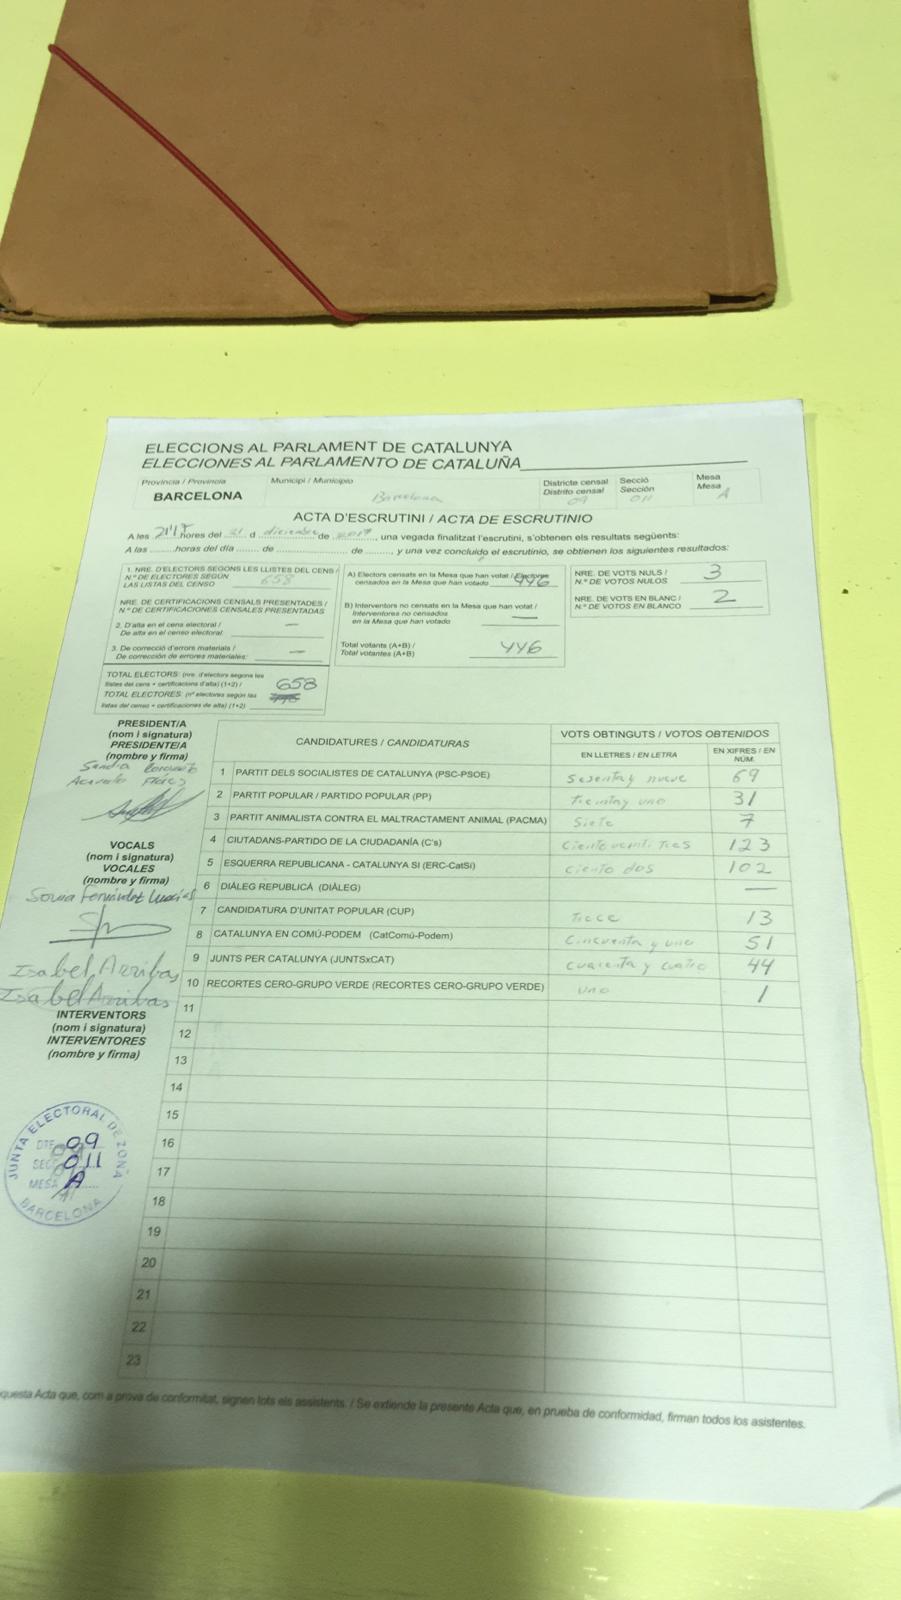 ELECCIONS AL PARLAMENT DE CATALUNYA
ELECCIONES AL PARLAMENTO DE CATALUÑA
Província / Provincia
BARCELONA
Municipi / Municipio
Barcelona
Districte censal
Distrito censal
09
Secció
Sección
011
Mesa
Mesa
A
ACTA D'ESCRUTINI / ACTA DE ESCRUTINIO
A les 21'15 hores del 21 d diciembre de 2017, una vegada finalitzat l'escrutini, s'obtenen els resultats següents:
A las ........ horas del día ....... de ....................... de ........, y una vez concluido el escrutinio, se obtienen los siguientes resultados:
1. NRE. D'ELECTORS SEGONS LES LLISTES DEL CENS /
N.º DE ELECTORES SEGÚN
LAS LISTAS DEL CENSO 658
NRE. DE CERTIFICACIONS CENSALS PRESENTADES /
N.º DE CERTIFICACIONES CENSALES PRESENTADAS
2. D'alta en el cens electoral /
De alta en el censo electoral: —
3. De correcció d'errors materials /
De corrección de errores materiales: —
TOTAL ELECTORS: (nre. d'electors segons les
llistes del cens + certificacions d'alta) (1+2) / 658
TOTAL ELECTORES: (nº electores según las
listas del censo + certificaciones de alta) (1+2)
A) Electors censats en la Mesa que han votat / Electores
censados en la Mesa que han votado 446
B) Interventors no censats en la Mesa que han votat /
Interventores no censados
en la Mesa que han votado —
Total votants (A+B) /
Total votantes (A+B) 446
NRE. DE VOTS NULS /
N.º DE VOTOS NULOS 3
NRE. DE VOTS EN BLANC /
N.º DE VOTOS EN BLANCO 2
PRESIDENT/A
(nom i signatura)
PRESIDENTE/A
(nombre y firma)
Sandra
Acevedo Flores
VOCALS
(nom i signatura)
VOCALES
(nombre y firma)
Sonia Fernández
Isabel Arribas
Isabel Arribas
INTERVENTORS
(nom i signatura)
INTERVENTORES
(nombre y firma)
CANDIDATURES / CANDIDATURAS
VOTS OBTINGUTS / VOTOS OBTENIDOS
EN LLETRES / EN LETRA
EN XIFRES / EN NÚM.
1 PARTIT DELS SOCIALISTES DE CATALUNYA (PSC-PSOE) sesenta y nueve 69
2 PARTIT POPULAR / PARTIDO POPULAR (PP) treinta y uno 31
3 PARTIT ANIMALISTA CONTRA EL MALTRACTAMENT ANIMAL (PACMA) Siete 7
4 CIUTADANS-PARTIDO DE LA CIUDADANÍA (C's) ciento veinti tres 123
5 ESQUERRA REPUBLICANA - CATALUNYA SI (ERC-CatSí) ciento dos 102
6 DIÀLEG REPUBLICÀ (DIÀLEG) —
7 CANDIDATURA D'UNITAT POPULAR (CUP) Trece 13
8 CATALUNYA EN COMÚ-PODEM (CatComú-Podem) Cincuenta y uno 51
9 JUNTS PER CATALUNYA (JUNTSxCAT) cuarenta y cuatro 44
10 RECORTES CERO-GRUPO VERDE (RECORTES CERO-GRUPO VERDE) uno 1
11
12
13
14
15
16
17
18
19
20
21
22
23
JUNTA ELECTORAL DE ZONA
DTE. 09
SEC. 011
MESA A
BARCELONA
questa Acta que, com a prova de conformitat, signen tots els assistents. / Se extiende la presente Acta que, en prueba de conformidad, firman todos los asistentes.